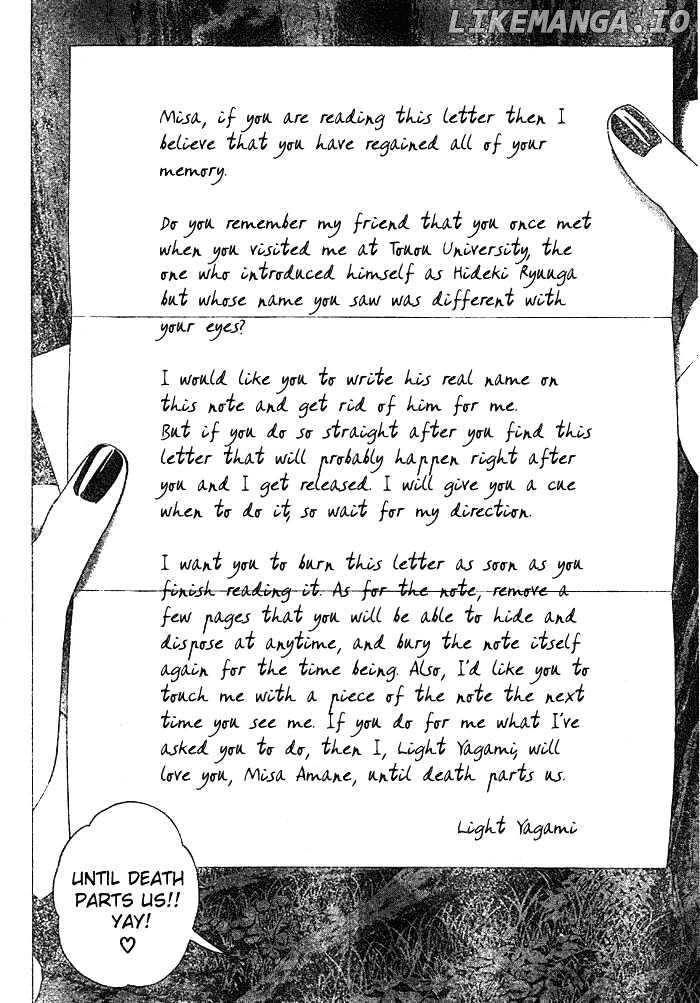 LIKEMANGA.IO
Misa, if you are reading this letter then I
believe that you have regained all of your
memory.
Do you remember my friend that you once met
when you visited me at Touou University, the
one who introduced himself as Hideki Ryuuga
but whose name you saw was different with
your eyes?
I would like you to write his real name on
this note and get rid of him for me.
But if you do so straight after you find this
letter that will probably happen right after
you and I get released. I will give you a cue
when to do it, so wait for my direction.
I want you to burn this letter as soon as you
finish reading it. As for the note, remove a
few pages that you will be able to hide and
dispose at anytime, and bury the note itself
again for the time being. Also, I'd like you to
touch me with a piece of the note the next
time you see me. If you do for me what I've
asked you to do, then I, Light Yagami, will
love you, Misa Amane, until death parts us.
Light Yagami
UNTIL DEATH
PARTS US!!
YAY!
♡